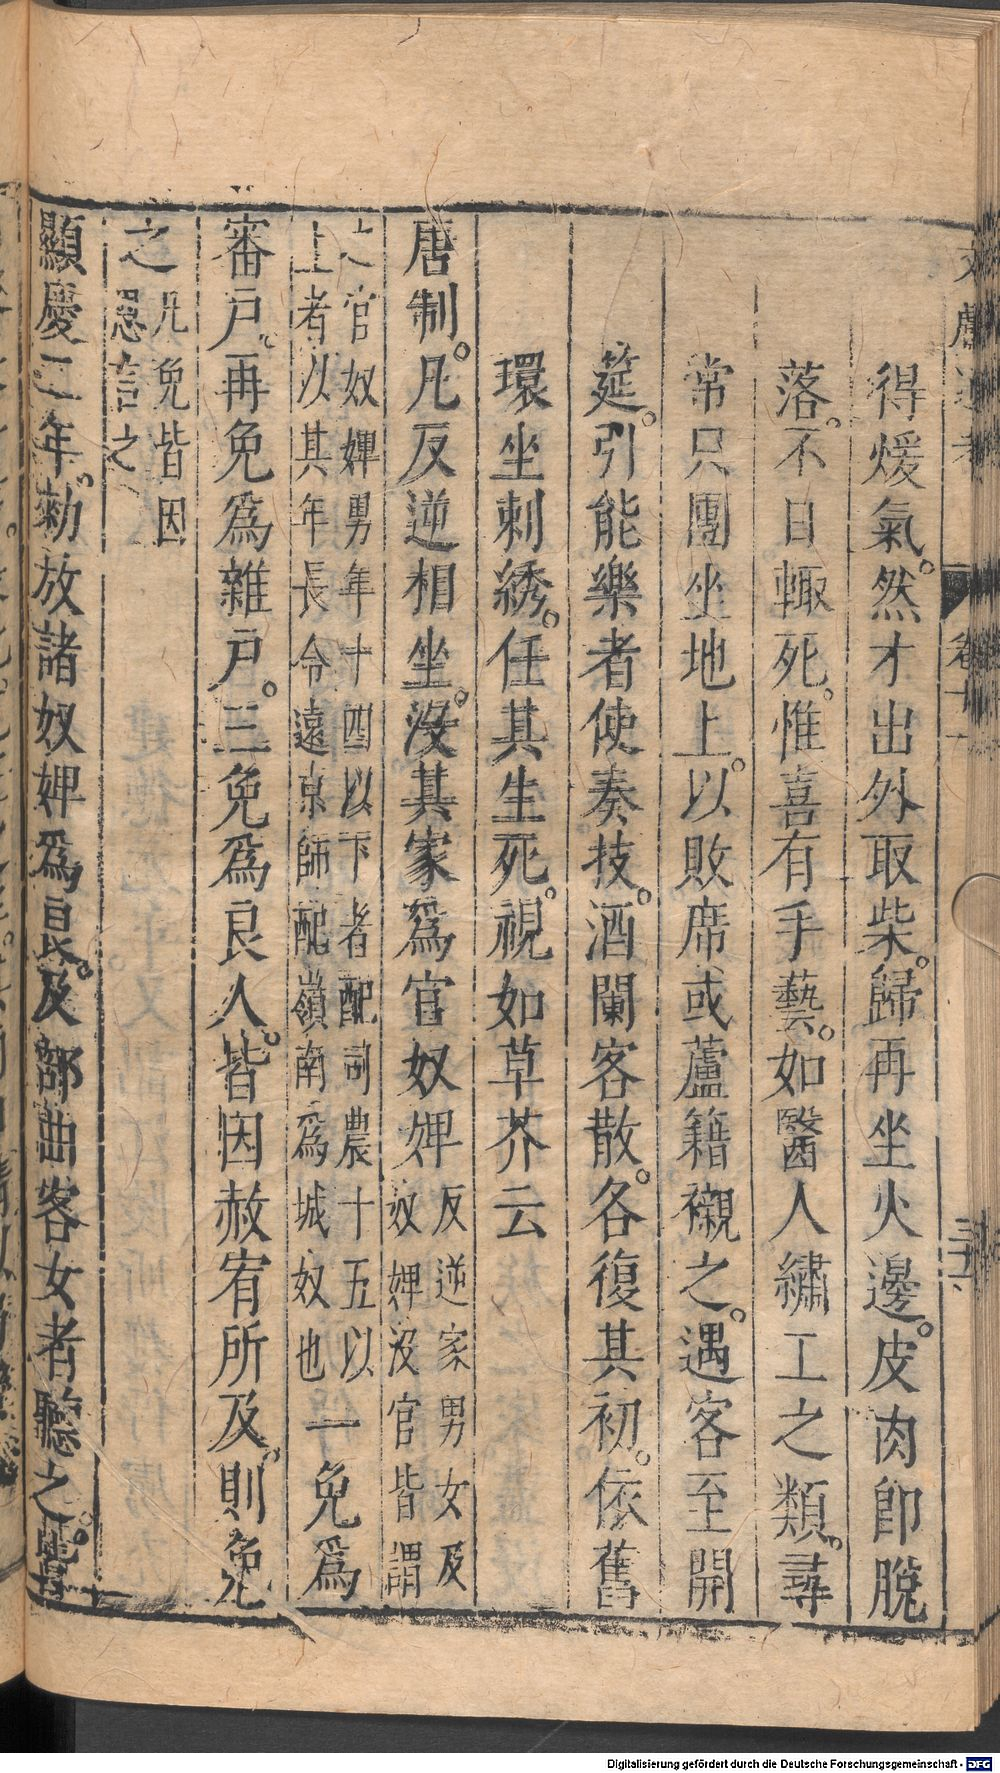 得煖氣。然才出外取柴。歸再坐火邊。皮肉卽脫
落。不日輙死。惟喜有手藝。如醫人繡工之類。尋
常只團坐地上。以敗席或蘆籍襯之。遇客至開
筵。引能樂者使奏技。酒闌客散。各復其初。依舊
環坐刺綉。任其生死。視如草芥云
唐制。凡反逆相坐。沒其家爲官奴婢反逆家男女及奴婢沒官皆謂
之官奴婢男年十四以下者配司農十五以上者以其年長令遠京師配嶺南爲城奴也一免爲
審戸。再免爲雜戸。三免爲良人。皆因赦宥所及。則免
之凡免皆因恩言之
顯慶二年。勑放諸奴婢爲良。及部曲客女者聽之。
卷十一
Digitalisierung gefördert durch die Deutsche Forschungsgemeinschaft - DFG